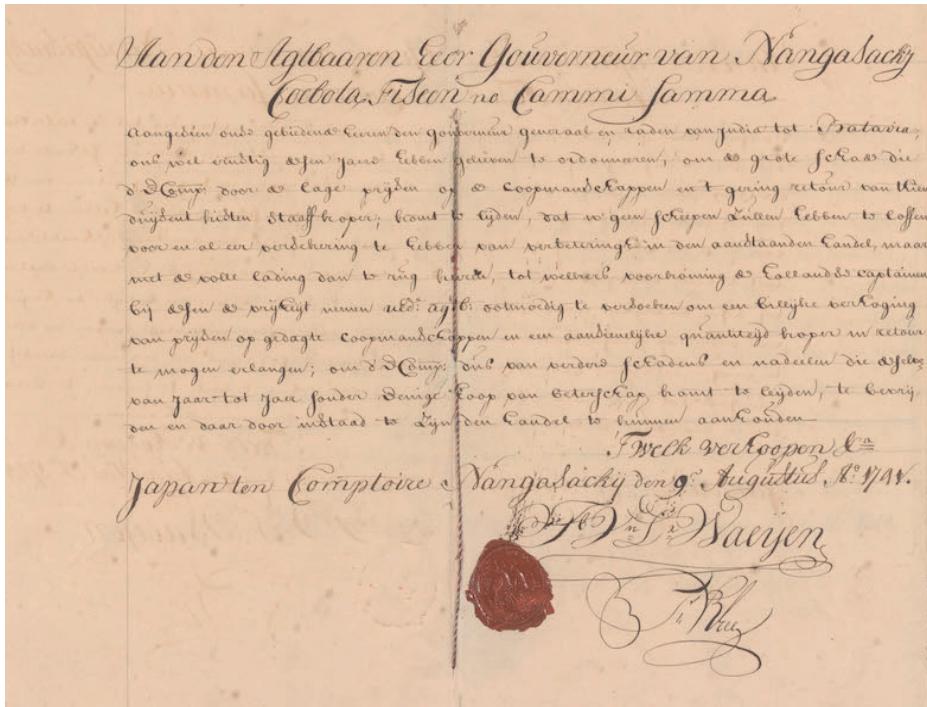 Aan den Agtbaaren Heer Gouverneur van Nangasackij
Coebota, Fiseen no Cammi Samma
Aangesien onse gebiedende heeren den gouverneur generaal en raden van India tot Batavia,
ons wel ernstig desen jaere hebben gelieven te ordonneeren, om de grote schade die
d' E Comp: door de lage prijsen op de coopmanschappen en 't gering retour van
duijsent kisten staaff koper, komt te lijden, dat w' geen scheepen zullen hebben te lossen
voor en al eer versekering te hebben van verbetering in den aanstaanden handel, maar
met de volle lading dan te rug keeren, tot welkers voorkoming de hollandse captainen
bij desen de vrijheijt nemen ootmoedig te versoeken om een billijke verhoging
van prijsen op gedagte coopmanschappen en een aansienelijke quantiteijd koper in retour
te mogen erlangen; om d' E Comp: dus van verdere schadens en nadeelen die deselve
van Jaar tot Jaer sonder eenige hoop van beterschap komt te leijden, te bevrij,
den en daar door instaad te zijn den handel te kunnen aanhouden
T welk verhoopen &a
Japan ten Comptoire Nangasackij den 9e Augustus Ao
Waeijen